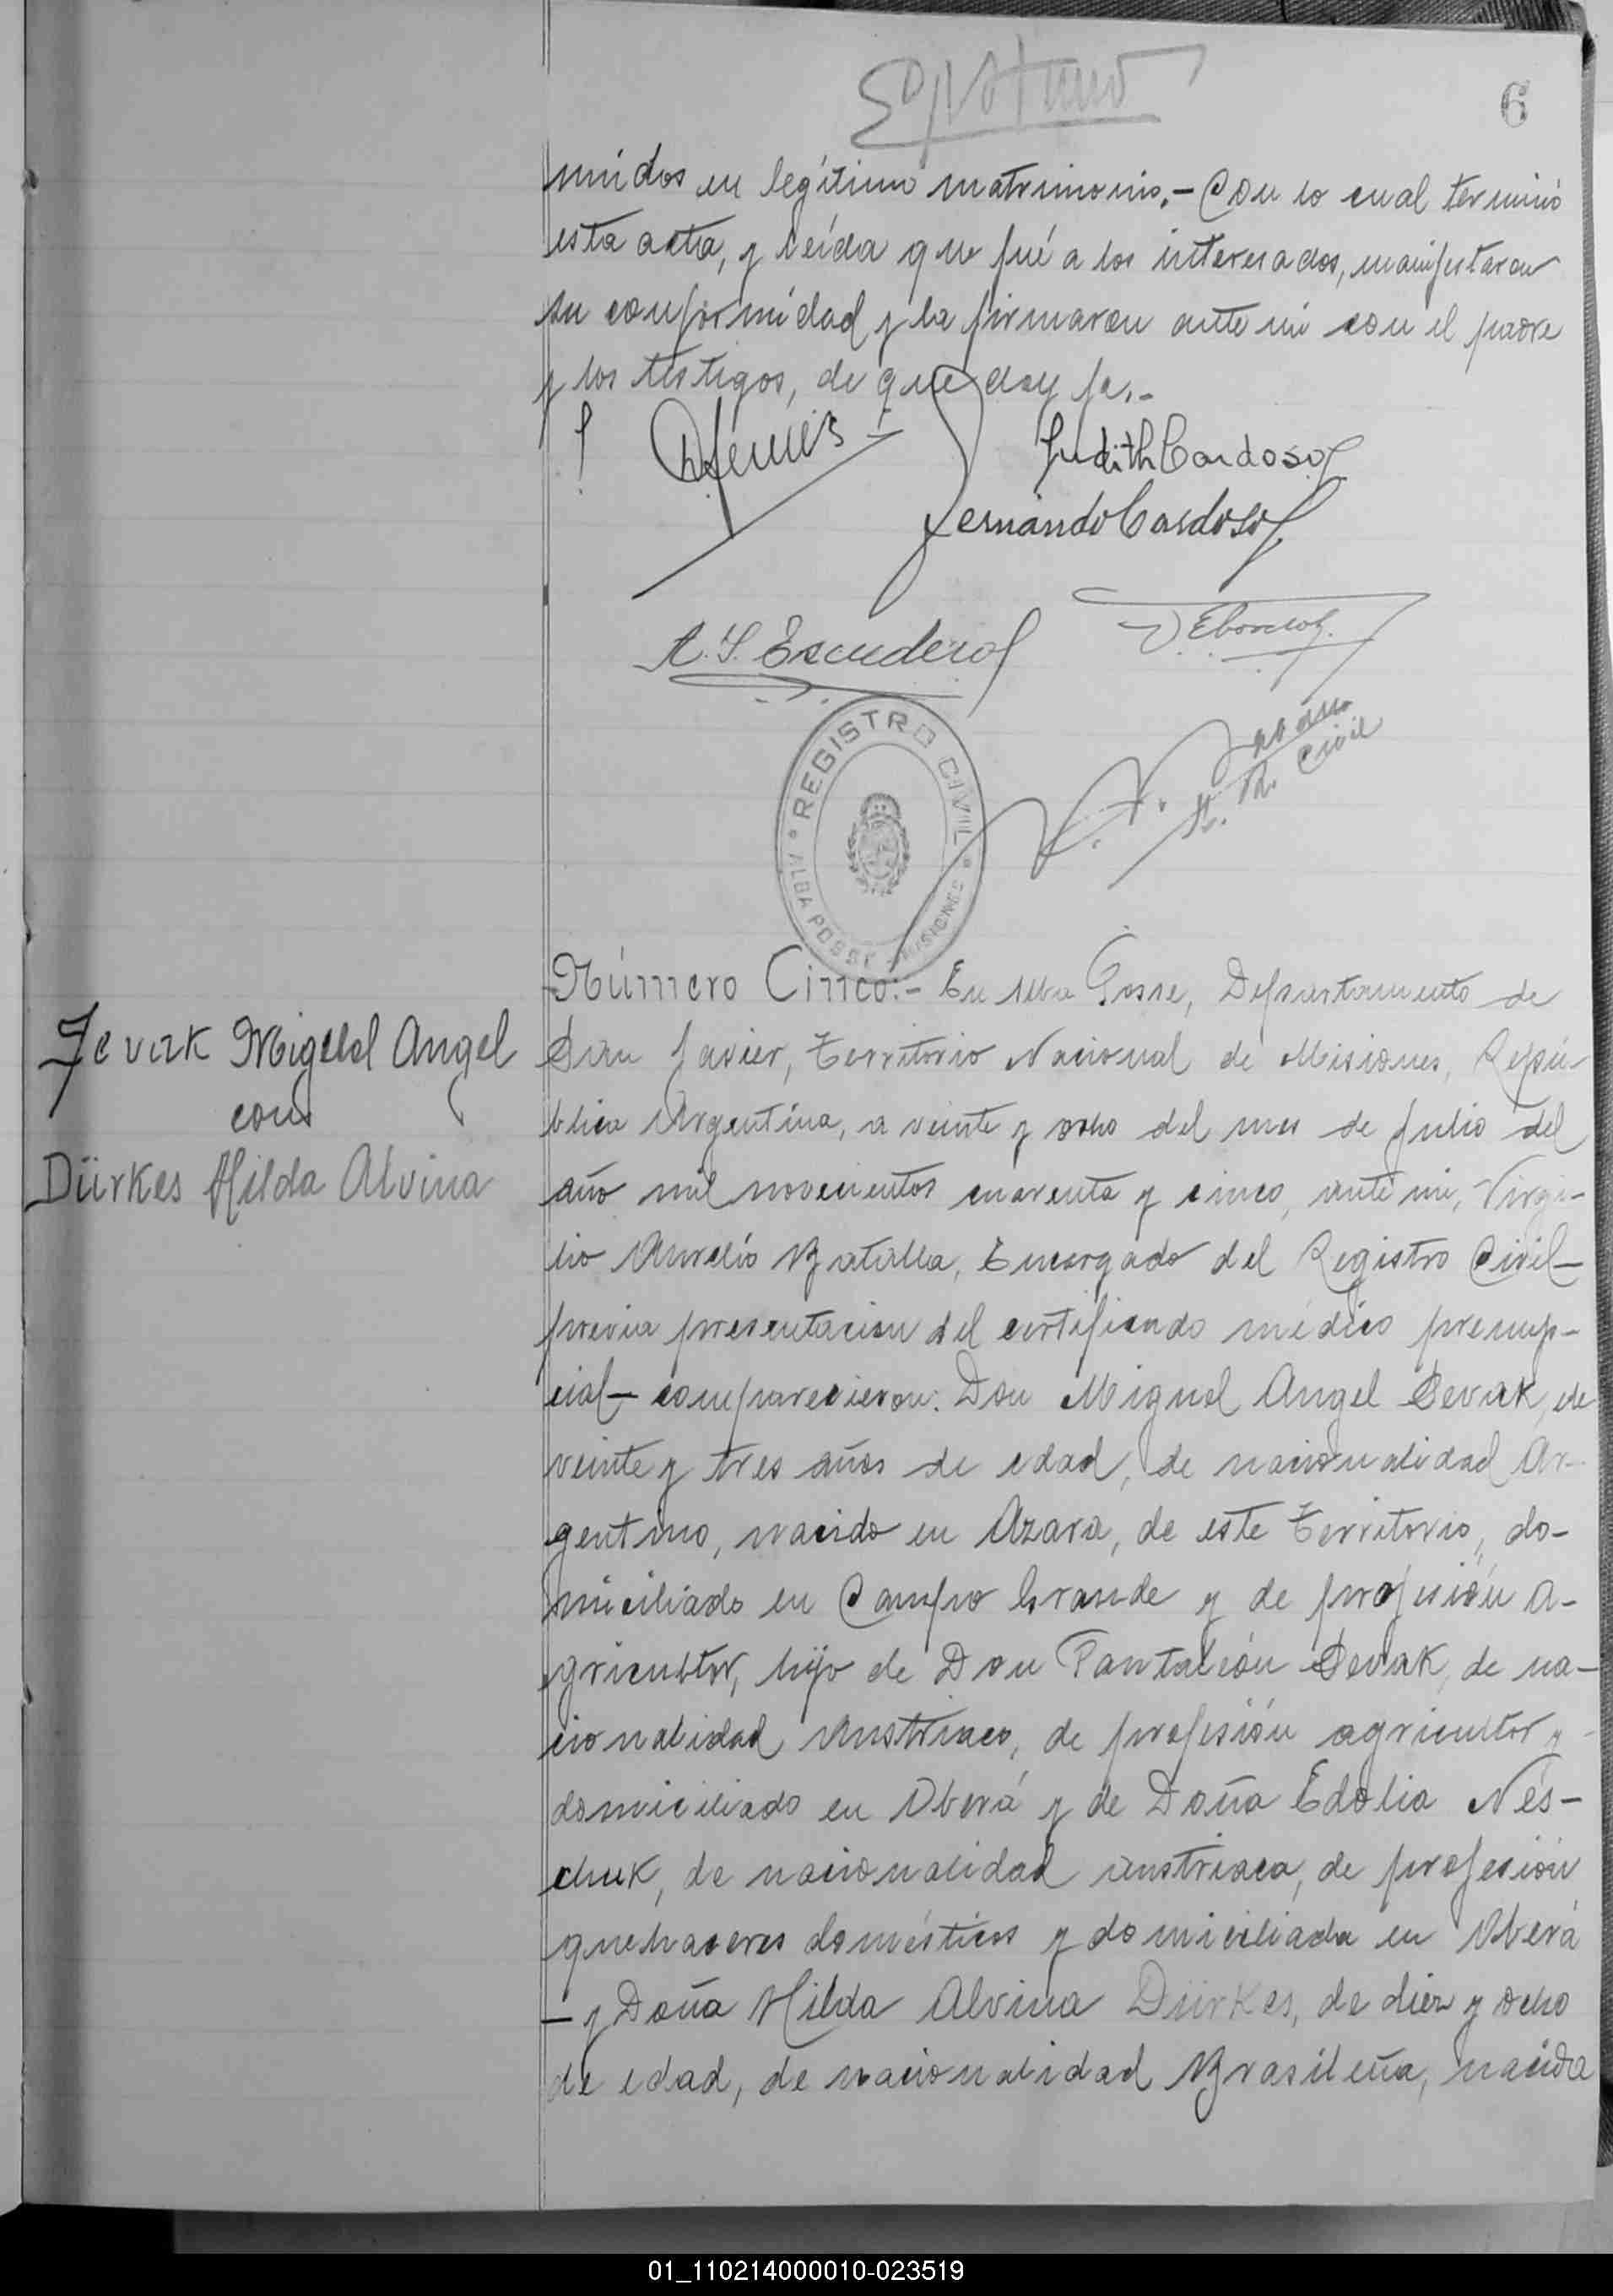 6
unidos en legítimo matrimonio.- Con lo cual terminó
esta acta, y leída que fué a los interesados, manifestaron
su conformidad y la firmaron ante mi con el padre
y los testigos, de que doy fe.-
Judith Cardoso
Fernando Cardoso
A. S. Escudero
REGISTRO CIVIL
ALBA POSSE - MISIONES
R. Civil
Número Cinco:- En Alba Posse, Departamento de
San Javier, Territorio Nacional de Misiones, Repú-
blica Argentina, a veinte y ocho del mes de Julio del
año mil novecientos cuarenta y cinco, ante mi, Virgi-
lio Aurelio Batalla, Encargado del Registro Civil-
previa presentación del certificado médico prenup-
cial- comparecieron: Don Miguel Angel Sevak, de
veinte y tres años de edad, de nacionalidad Ar-
gentino, nacido en Azara, de este Territorio, do-
miciliado en Campo Grande y de profesión a-
gricultor, hijo de Don Pantaleón Sevak, de na-
cionalidad Austriaco, de profesión agricultor y
domiciliado en Oberá y de Doña Edolia Nes-
chuk, de nacionalidad austriaca, de profesión
quehaceres domésticos y domiciliada en Oberá
- y Doña Hilda Alvina Dürkes, de diez y ocho
de edad, de nacionalidad Brasileña, nacida
Sevak Miguel Angel
con
Dürkes Hilda Alvina
01_110214000010-023519